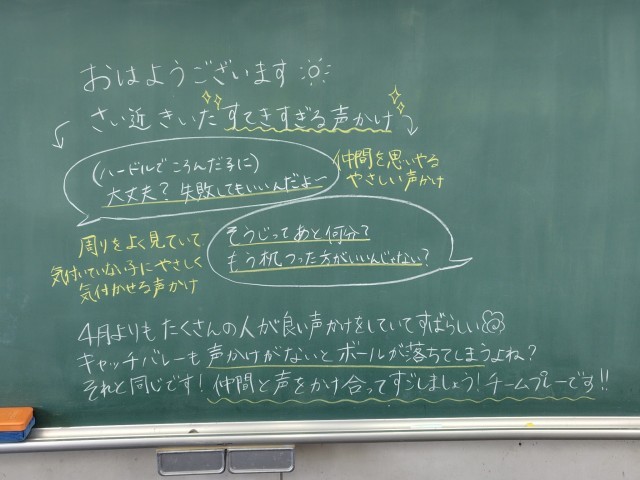 おはようございます
さい近きいたすてきすぎる声かけ
(ハードルでころんだ子に)
大丈夫?失敗してもいいんだよー
仲間を思いやる
やさしい声かけ
そうじってあと何分?
もう机つった方がいいんじゃない?
周りをよく見ていて
気付いていない子にやさしく
気付かせる声かけ
4月よりもたくさんの人が良い声かけをしていてすばらしい
キャッチバレーも声かけがないとボールが落ちてしまうよね?
それと同じです!仲間と声をかけ合ってすごしましょう!チームプレーです!!